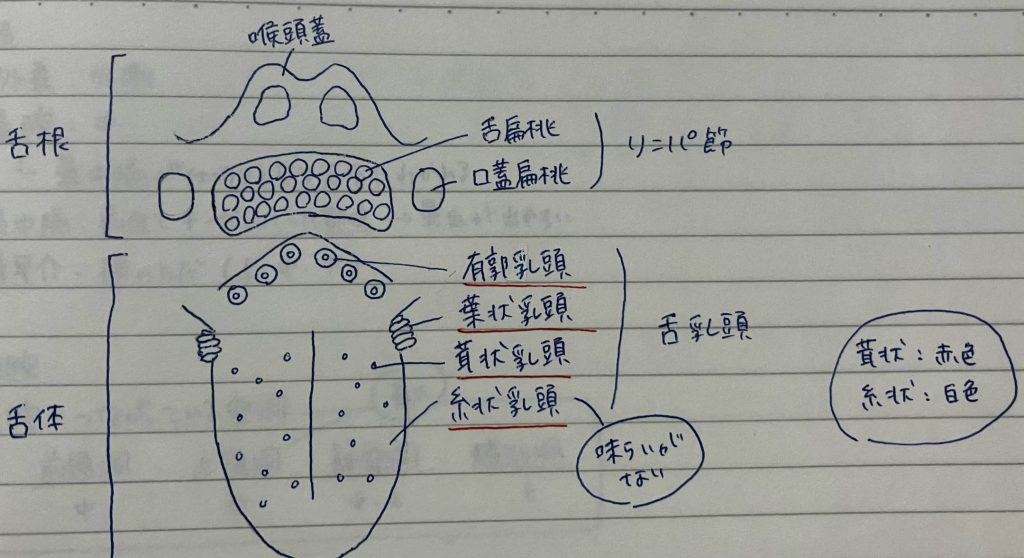 喉頭蓋
舌根
舌扁桃
口蓋扁桃
リンパ節
有郭乳頭
葉状乳頭
茸状乳頭
糸状乳頭
舌乳頭
舌体
味らいが
ない
茸状：赤色
糸状：白色